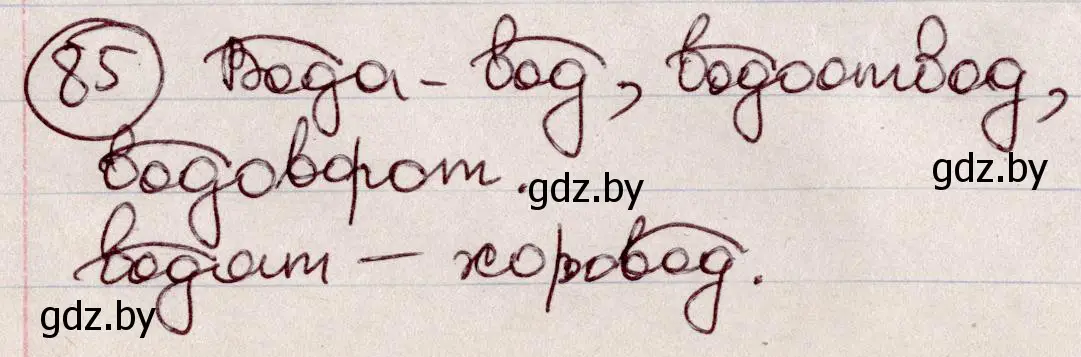 85 Вода – вод, водоотвод,
водоворот.
gdz.by
gdz.by
водят – хоровод.
gdz.by